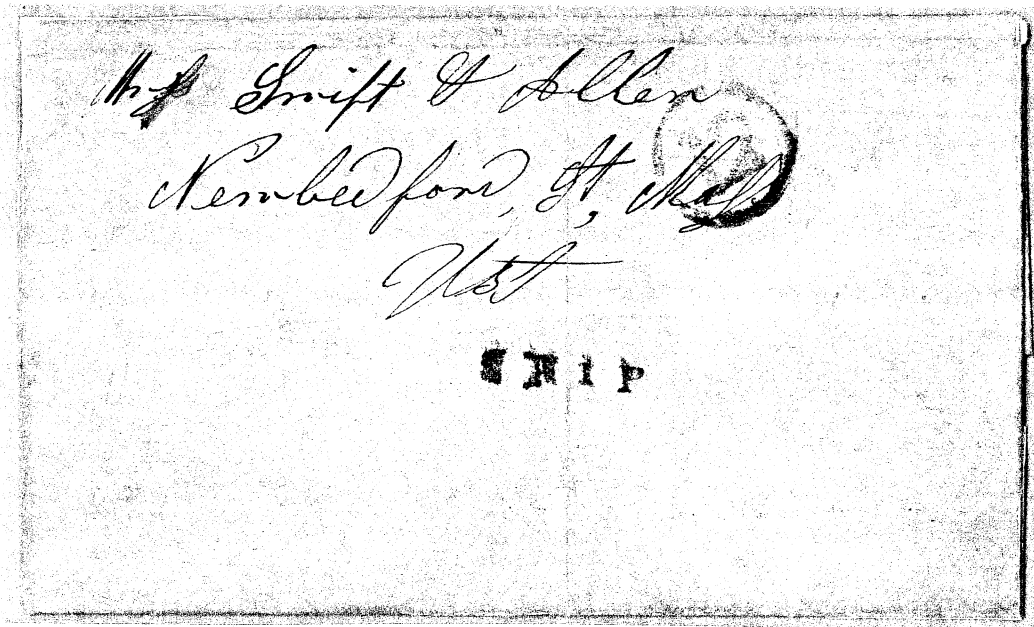 Swift & Allen
Newbedford, St, Mass
USA
SHIP